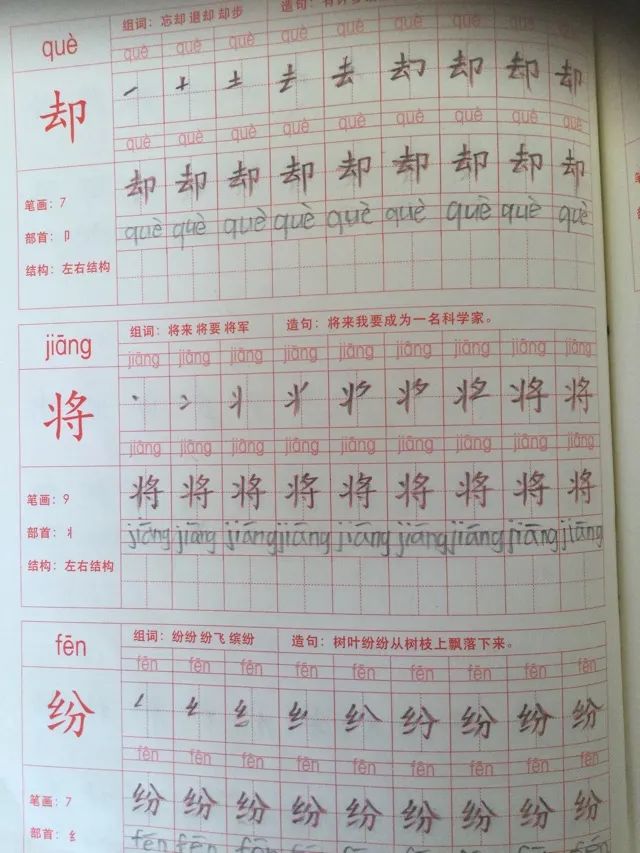 què
组词：忘却 退却 却步
造句：有许多
què què què què què què què què què
却
què què què què què què què què què
却 却 却 却 却 却 却 却 却
笔画：7
què què què què què què què què què
部首：卩
结构：左右结构
jiāng
组词：将来 将要 将军
造句：将来我要成为一名科学家。
jiāng jiāng jiāng jiāng jiāng jiāng jiāng jiāng jiāng
将
jiāng jiāng jiāng jiāng jiāng jiāng jiāng jiāng jiāng
将 将 将 将 将 将 将 将 将
笔画：9
jiāng jiāng jiāng jiāng jiāng jiāng jiāng jiāng jiāng
部首：丬
结构：左右结构
fēn
组词：纷纷 纷飞 缤纷
造句：树叶纷纷从树枝上飘落下来。
fēn fēn fēn fēn fēn fēn fēn fēn fēn
纷
fēn fēn fēn fēn fēn fēn fēn fēn fēn
纷 纷 纷 纷 纷 纷 纷 纷 纷
笔画：7
部首：纟